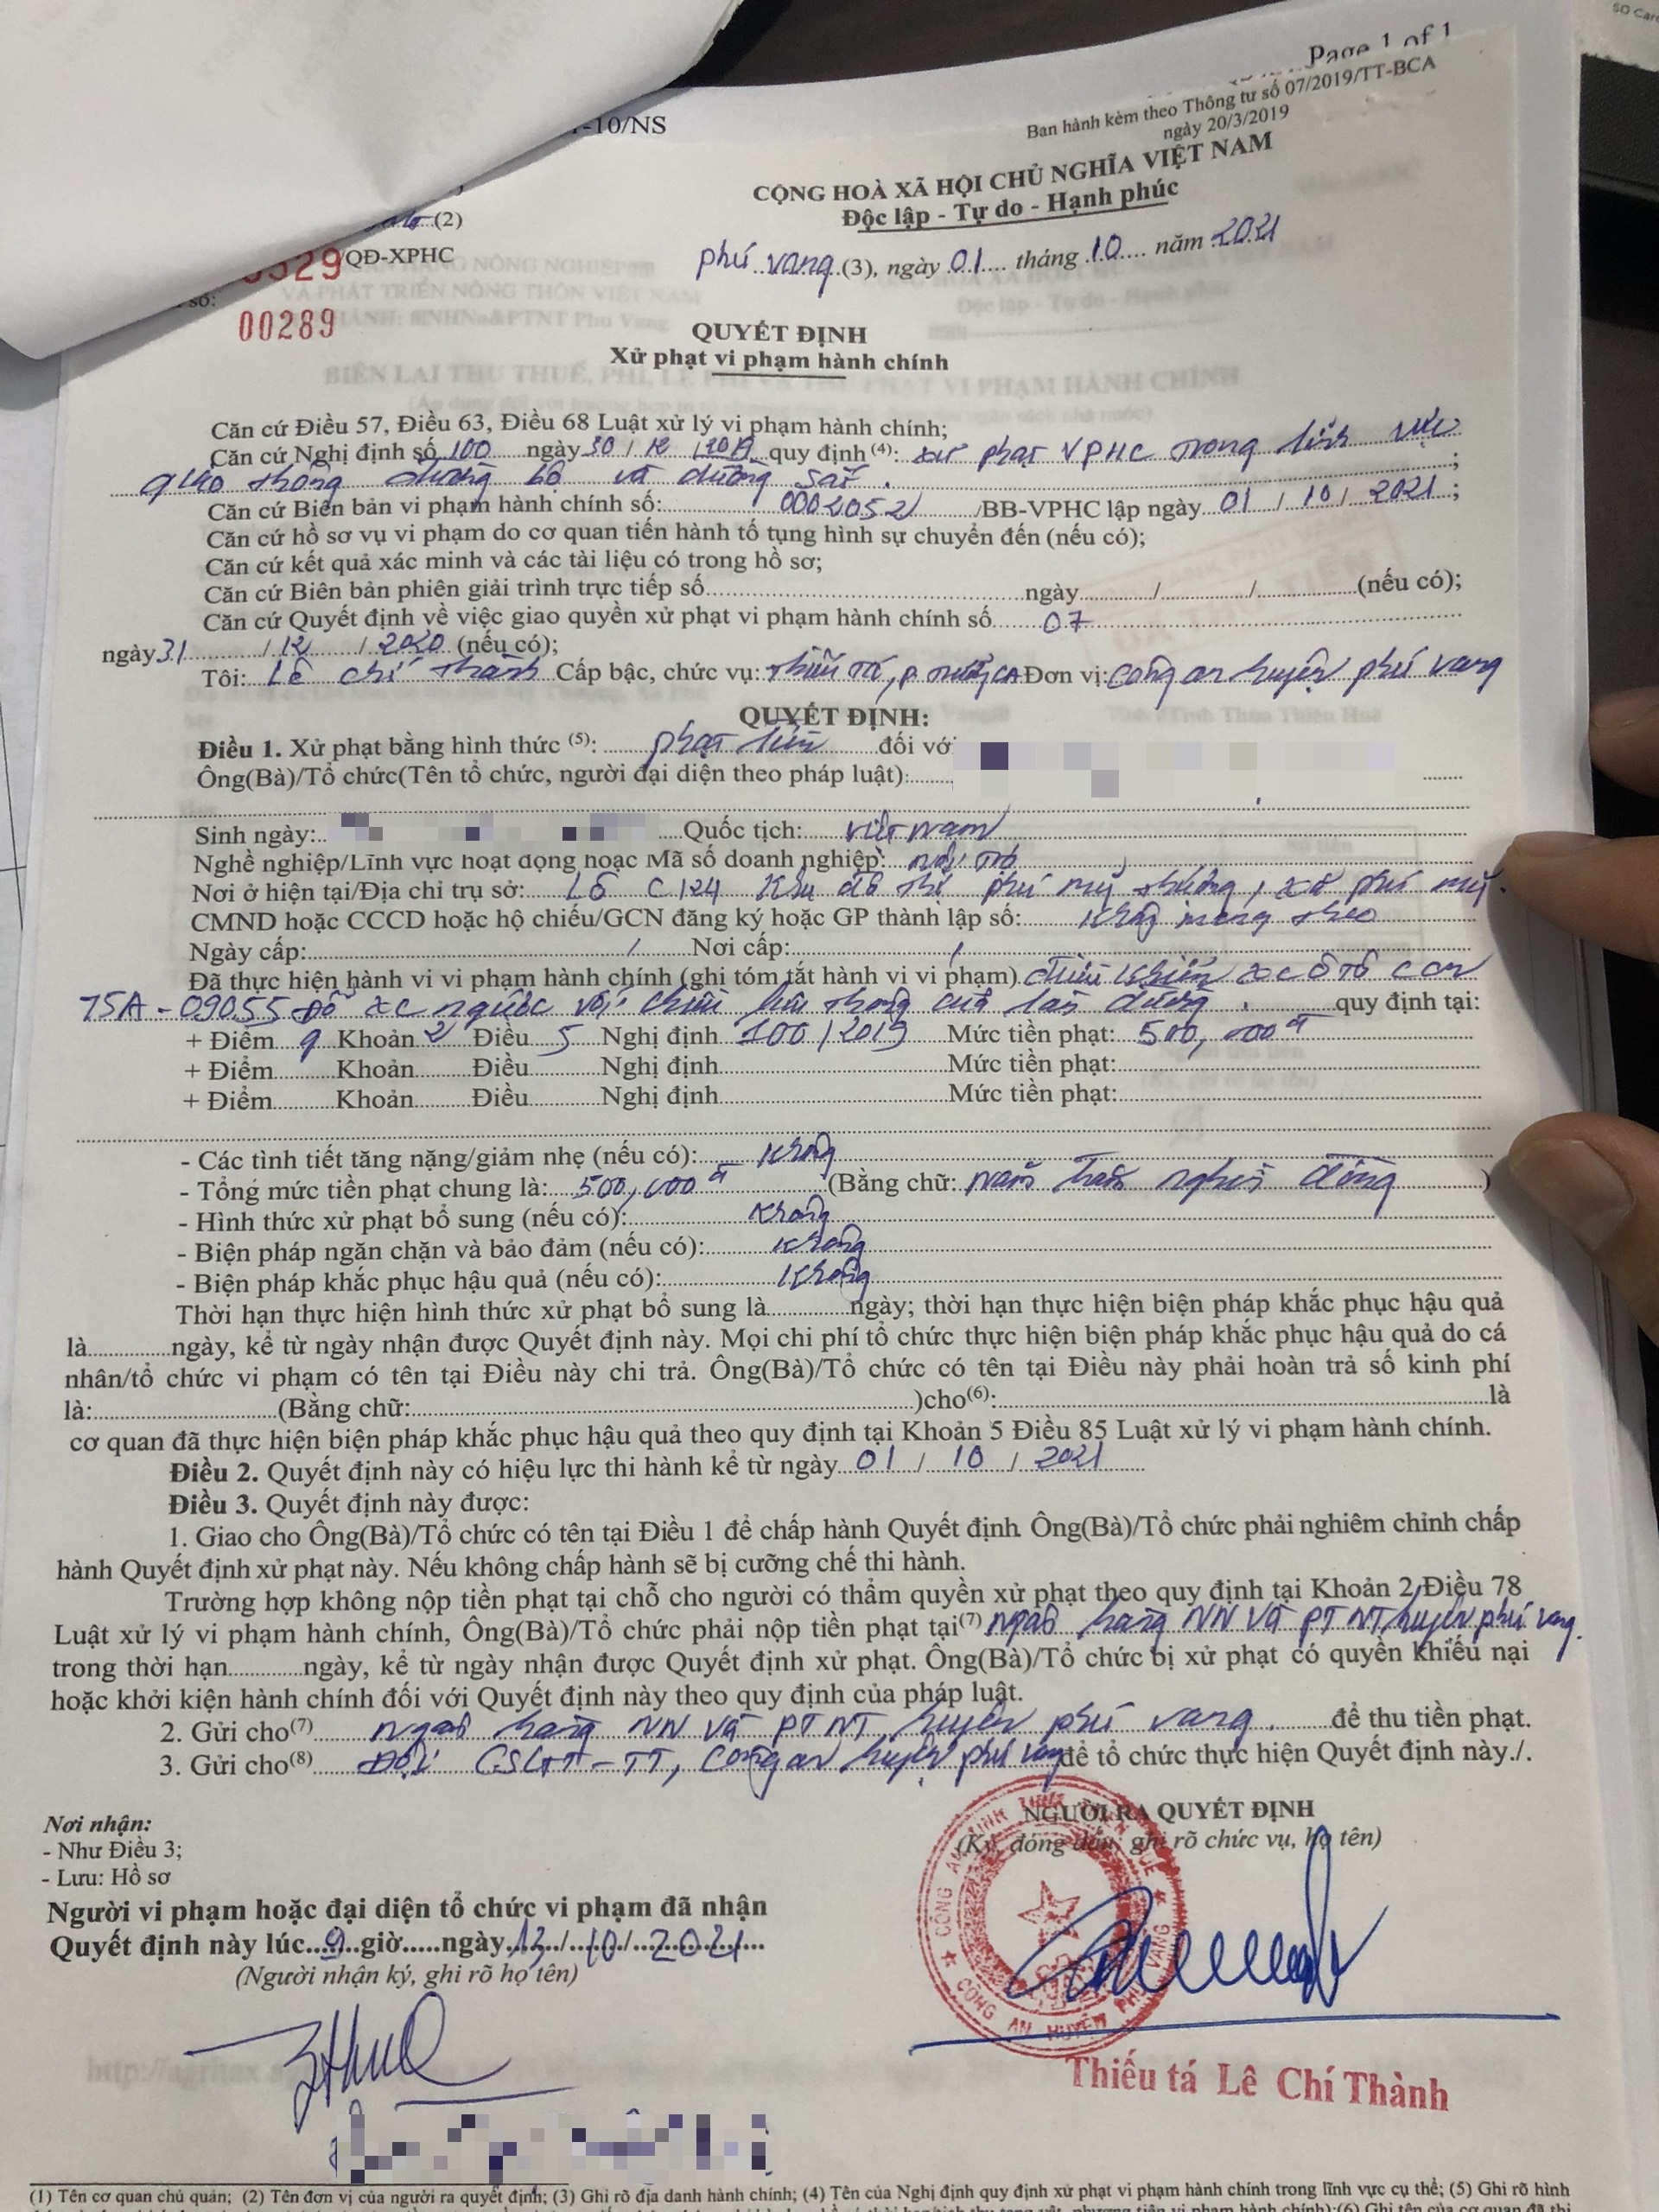 SD Card
Page 1 of 1
Ban hành kèm theo Thông tư số 07/2019/TT-BCA
ngày 20/3/2019
-10/NS
CỘNG HOÀ XÃ HỘI CHỦ NGHĨA VIỆT NAM
Độc lập - Tự do - Hạnh phúc
(2)
/QĐ-XPHC
Phú Vang (3), ngày 01 tháng 10 năm 2021
số:
00289
QUYẾT ĐỊNH
Xử phạt vi phạm hành chính
Căn cứ Điều 57, Điều 63, Điều 68 Luật xử lý vi phạm hành chính;
Căn cứ Nghị định số 100 ngày 30/12/2019 quy định (4): xử phạt VPHC trong lĩnh vực
giao thông đường bộ và đường sắt.;
Căn cứ Biên bản vi phạm hành chính số: 0002052 /BB-VPHC lập ngày 01/10/2021;
Căn cứ hồ sơ vụ vi phạm do cơ quan tiến hành tố tụng hình sự chuyển đến (nếu có);
Căn cứ kết quả xác minh và các tài liệu có trong hồ sơ;
Căn cứ Biên bản phiên giải trình trực tiếp số ngày / / (nếu có);
Căn cứ Quyết định về việc giao quyền xử phạt vi phạm hành chính số 07
ngày 31/12/2020 (nếu có);
Tôi: Lê Chí Thành Cấp bậc, chức vụ: Thiếu tá, P. trưởng CA Đơn vị: Công an huyện Phú Vang
QUYẾT ĐỊNH:
Điều 1. Xử phạt bằng hình thức (5): phạt tiền đối với
Ông(Bà)/Tổ chức(Tên tổ chức, người đại diện theo pháp luật):
Sinh ngày: Quốc tịch: Việt Nam
Nghề nghiệp/Lĩnh vực hoạt động hoặc Mã số doanh nghiệp: nội trợ
Nơi ở hiện tại/Địa chỉ trụ sở: Lô C124 Khu đô thị Phú Mỹ Thượng, xã Phú Mỹ.
CMND hoặc CCCD hoặc hộ chiếu/GCN đăng ký hoặc GP thành lập số: Không mang theo
Ngày cấp: / Nơi cấp: /
Đã thực hiện hành vi vi phạm hành chính (ghi tóm tắt hành vi vi phạm) điều khiển xe ô tô con
75A-09055 Đỗ xe ngược với chiều lưu thông của làn đường. quy định tại:
+ Điểm g Khoản 2 Điều 5 Nghị định 100/2019 Mức tiền phạt: 500,000đ
+ Điểm Khoản Điều Nghị định Mức tiền phạt:
+ Điểm Khoản Điều Nghị định Mức tiền phạt:
- Các tình tiết tăng nặng/giảm nhẹ (nếu có): Không
- Tổng mức tiền phạt chung là: 500,000đ (Bằng chữ: Năm trăm nghìn đồng)
- Hình thức xử phạt bổ sung (nếu có): Không
- Biện pháp ngăn chặn và bảo đảm (nếu có): Không
- Biện pháp khắc phục hậu quả (nếu có): Không
Thời hạn thực hiện hình thức xử phạt bổ sung là ngày; thời hạn thực hiện biện pháp khắc phục hậu quả
là ngày, kể từ ngày nhận được Quyết định này. Mọi chi phí tổ chức thực hiện biện pháp khắc phục hậu quả do cá
nhân/tổ chức vi phạm có tên tại Điều này chi trả. Ông(Bà)/Tổ chức có tên tại Điều này phải hoàn trả số kinh phí
là: (Bằng chữ: )cho(6): là
cơ quan đã thực hiện biện pháp khắc phục hậu quả theo quy định tại Khoản 5 Điều 85 Luật xử lý vi phạm hành chính.
Điều 2. Quyết định này có hiệu lực thi hành kể từ ngày 01/10/2021
Điều 3. Quyết định này được:
1. Giao cho Ông(Bà)/Tổ chức có tên tại Điều 1 để chấp hành Quyết định Ông(Bà)/Tổ chức phải nghiêm chỉnh chấp
hành Quyết định xử phạt này. Nếu không chấp hành sẽ bị cưỡng chế thi hành.
Trường hợp không nộp tiền phạt tại chỗ cho người có thẩm quyền xử phạt theo quy định tại Khoản 2 Điều 78
Luật xử lý vi phạm hành chính, Ông(Bà)/Tổ chức phải nộp tiền phạt tại(7) Ngân hàng NN và PTNT huyện Phú Vang.
trong thời hạn ngày, kể từ ngày nhận được Quyết định xử phạt. Ông(Bà)/Tổ chức bị xử phạt có quyền khiếu nại
hoặc khởi kiện hành chính đối với Quyết định này theo quy định của pháp luật.
2. Gửi cho(7) Ngân hàng NN và PTNT huyện Phú Vang. để thu tiền phạt.
3. Gửi cho(8) Đội CSGT-TT, Công an huyện Phú Vang để tổ chức thực hiện Quyết định này./.
Nơi nhận:
- Như Điều 3;
- Lưu: Hồ sơ
NGƯỜI RA QUYẾT ĐỊNH
(Ký, đóng dấu, ghi rõ chức vụ, họ tên)
CÔNG AN TỈNH THỪA THIÊN HUẾ
CÔNG AN HUYỆN PHÚ VANG
Người vi phạm hoặc đại diện tổ chức vi phạm đã nhận
Quyết định này lúc 9 giờ.....ngày 13/10/2021
(Người nhận ký, ghi rõ họ tên)
Thiếu tá Lê Chí Thành
(1) Tên cơ quan chủ quản; (2) Tên đơn vị của người ra quyết định; (3) Ghi rõ địa danh hành chính; (4) Tên của Nghị định quy định xử phạt vi phạm hành chính trong lĩnh vực cụ thể; (5) Ghi rõ hình